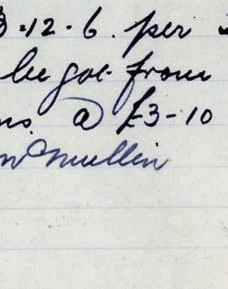 3.12.6. per
be got from
@ £3-10
McMullin